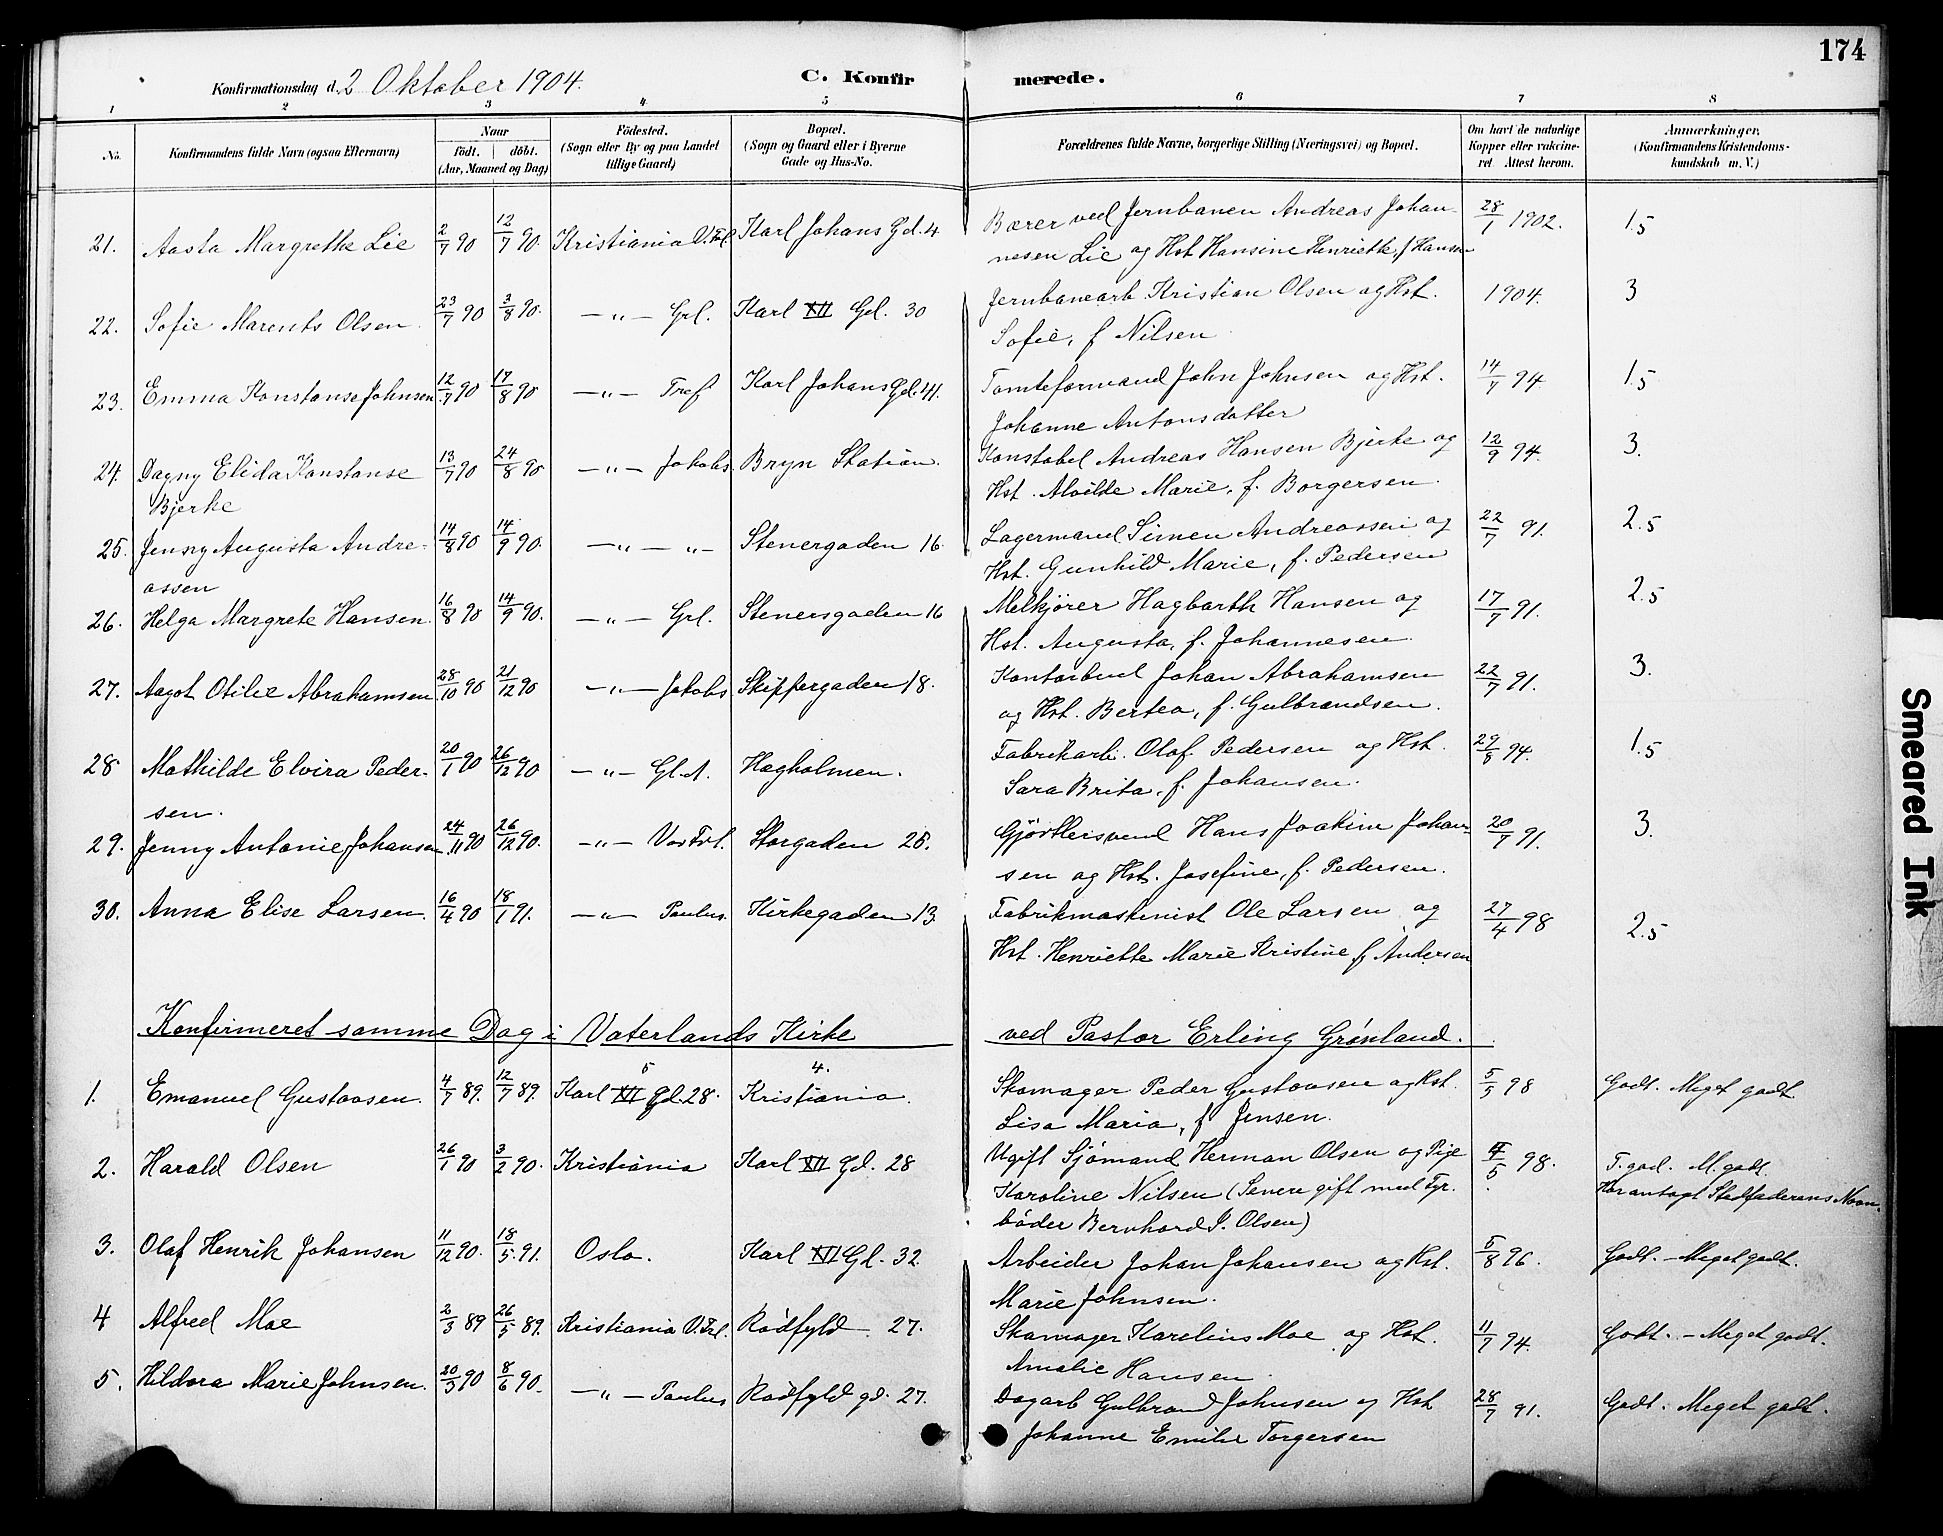 174
Konfirmationsdag d. 2 Oktober 1904.
C. Konfirmerede.
1 2 3 4 5 6 7 8
No.
Konfirmandens fulde Navn (ogsaa Efternavn)
Naar
født. døbt.
(Aar, Maaned og Dag)
Fødested.
(Sogn eller By og paa Landet
tillige Gaard)
Bopæl.
(Sogn og Gaard eller i Byerne
Gade og Hus-No.
Forældrenes fulde Navne, borgerlige Stilling (Næringsvei) og Bopæl.
Om havt de naturlige
Kopper eller vakcine-
ret. Attest herom.
Anmærkninger.
(Konfirmandens Kristendoms-
kundskab m. V.)
21. Aasta Margrethe Lie 2/7 90 12/7 90 Kristiania V. Frl. Karl Johans Gd. 4 Bærer ved Jernbanen Andreas Johan- 28/1 1902. 1.5
nesen Lie og Hst Hansine Henriette, f Hansen
22. Sofie Marents Olsen. 23/7 90 3/8 90. —"— Grl. Karl XII Gd. 30 Jernbanearb Kristian Olsen og Hst. 1904. 3
Sofie, f Nilsen
23. Emma Konstanse Johnsen 12/7 90 17/8 90 —"— Tref Karl Johans Gd. 41. Tomteformand John Johnsen og Hst. 14/7 94 1.5
Johanne Antonsdatter
24. Dagny Elida Konstanse 13/7 90 24/8 90 —"— Jakobs Bryn Station. Konstabel Andreas Hansen Bjerke og 12/9 94. 3.
Bjerke
Hst. Alvilde Marie, f. Borgersen.
25. Jenny Augusta Andre- 14/8 90 14/9 90. —"— "— Stenergaden 16 Lagermand Simen Andreassen og 22/7 91. 2.5
assen
Hst. Gunhild Marie, f. Pedersen
26. Helga Margrete Hansen. 16/8 90 14/9 90. —"— Grl. Stenersgaden 16 Melkjører Hagbarth Hansen og 17/7 91. 2.5
Hst. Augusta, f. Johannesen.
27. Aagot Otilie Abrahamsen 28/10 90 21/12 90 —"— Jakobs Skippergaden 18. Kontorbud Johan Abrahamsen 22/7 91. 3.
og Hst. Bertea, f. Gulbrandsen.
28 Mathilde Elvira Peder- 20/1 90 26/12 90 —"— Gl. A. Hagholmen. Fabrikarb. Olaf Pedersen og Hst. 29/8 94. 1.5
sen.
Sara Brita, f. Johansen.
29. Jenny Antonie Johansen 24/11 90 26/12 90. —"— Vor Frl. Storgaden 25. Gjørtlersvend Hans Joakim Johan- 20/7 91. 3.
sen og Hst. Josefine, f. Pedersen.
30. Anna Elise Larsen. 16/4 90 18/1 91. —"— Paulus. Kirkegaden 13 Fabrikmaskinist Ole Larsen og 27/4 98 2.5
Hst. Henriette Marie Kristine f. Andersen
Konfirmeret samme Dag i Vaterlands Kirke ved Pastor Erling Grønland.
5 4.
1. Emanuel Gustavsen. 4/7 89. 12/7 89. Karl XII Gd. 28. Kristiania. Skomager Peder Gustavsen og Hst. 5/5 98 Godt. Meget godt
Lisa Maria, f Jensen.
2. Harald Olsen 26/1 90 3/2 90. Kristiania Karl XII Gd. 28 Ugift Sjømand Herman Olsen og Pige 4/5 98. T. god. M. godt.
Karoline Nilsen (Senere gift med Fyr- Har antagt Stedfaderens Navn.
bøder Bernhard J. Olsen)
3. Olaf Henrik Johansen 11/12 90. 18/5 91. Oslo. Karl XII Gd. 32. Arbeider Johan Johansen og Hst. 5/8 96. Godt. — Meget godt.
Marie Johnsen.
4 Alfred Moe 2/3 89 26/5 89. Kristiania V. Frl. Rødfyld 27. Skomager Karelius Moe og Hst. 11/7 94. Godt. — Meget godt.
Amalie Hansen.
5. Hildora Marie Johnsen. 20/3 90 8/6 90. —"— Paulus Rødfyld gd. 27. Dagarb Gulbrand Johnsen og Hst 28/7 91. Godt. Meget godt.
Johanne Emilie Torgersen
Smeared Ink